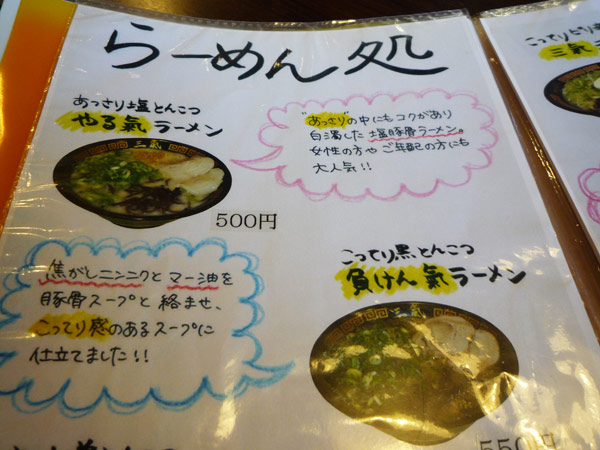 らーめん処
あっさり塩とんこつ
やる氣ラーメン
三氣
500円
"あっさり"の中にもコクがあり
白濁した塩豚骨ラーメン。
女性の方やご年配の方にも
大人気!!
こってり黒とんこつ
負けん氣ラーメン
三氣
550円
焦がしニンニクとマー油を
豚骨スープと絡ませ、
こってり感のあるスープに
仕立てました!!
三氣